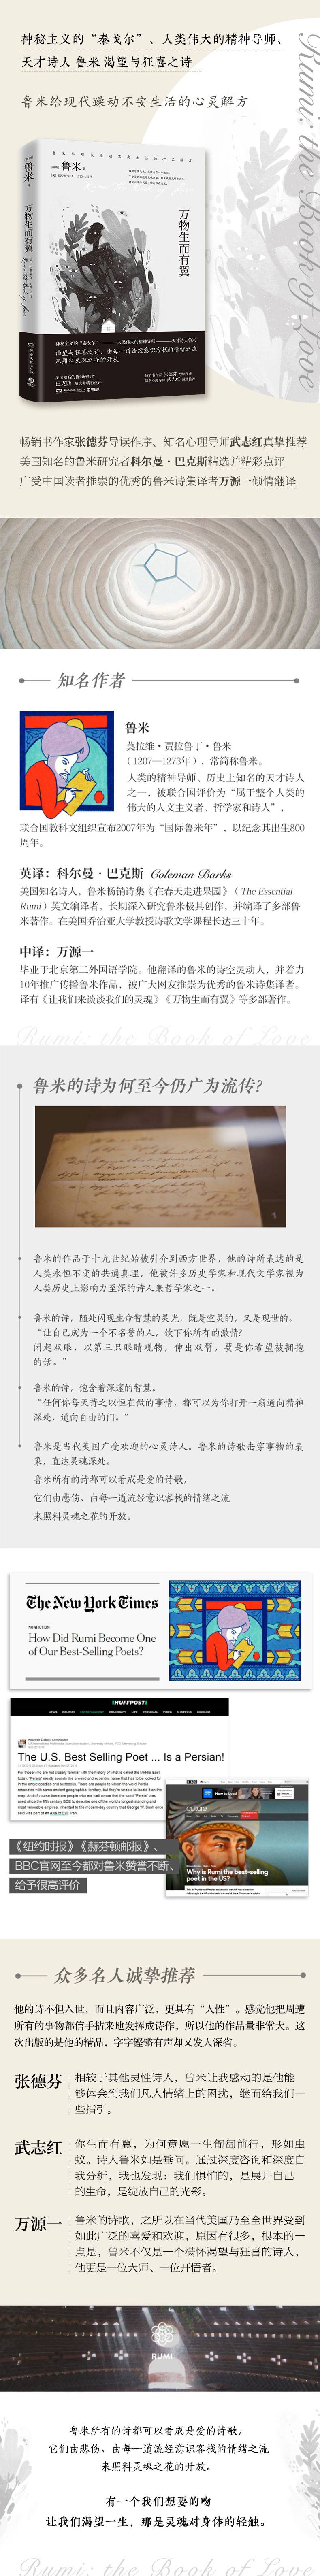 神秘主义的“泰戈尔”、人类伟大的精神导师、
天才诗人 鲁米 渴望与狂喜之诗
鲁米给现代躁动不安生活的心灵解方
Rumi: the Book of Love
鲁米
万物生而有翼
鲁米
万物生而有翼
神秘主义的“泰戈尔”————人类伟大的精神导师————天才诗人鲁米
渴望与狂喜之诗，由每一道流经意识客栈的情绪之流
来照料灵魂之花的开放
畅销书作家张德芬导读作序、知名心理导师武志红真挚推荐
美国知名的鲁米研究者科尔曼·巴克斯精选并精彩点评
广受中国读者推崇的优秀的鲁米诗集译者万源一倾情翻译
知名作者
鲁米
莫拉维·贾拉鲁丁·鲁米
（1207—1273年），常简称鲁米。
人类的精神导师、历史上知名的天才诗人
之一，被联合国评价为“属于整个人类的
伟大的人文主义者、哲学家和诗人”，
联合国教科文组织宣布2007年为“国际鲁米年”，以纪念其出生800
周年。
英译：科尔曼·巴克斯 Coleman Barks
美国知名诗人，鲁米畅销诗集《在春天走进果园》（The Essential
Rumi）英文编译者，长期深入研究鲁米极其创作，并编译了多部鲁
米著作。在美国乔治亚大学教授诗歌文学课程长达三十年。
中译：万源一
毕业于北京第二外国语学院。他翻译的鲁米的诗空灵动人，并着力
10年推广传播鲁米作品，被广大网友推崇为优秀的鲁米诗集译者。
译有《让我们来谈谈我们的灵魂》《万物生而有翼》等多部著作。
Rumi: the Book of Love
鲁米的诗为何至今仍广为流传？
鲁米的作品于十九世纪始被引介到西方世界，他的诗所表达的是
人类永恒不变的共通真理，他被许多历史学家和现代文学家视为
人类历史上影响力至深的诗人兼哲学家之一。
鲁米的诗，随处闪现生命智慧的灵光，既是空灵的，又是现世的。
“让自己成为一个不名誉的人，饮下你所有的激情！
闭起双眼，以第三只眼睛观物，伸出双臂，要是你希望被拥抱
的话。”
鲁米的诗，饱含着深邃的智慧。
“任何你每天持之以恒在做的事情，都可以为你打开一扇通向精神
深处，通向自由的门。”
鲁米是当代美国广受欢迎的心灵诗人。鲁米的诗歌击穿事物的表
象，直达灵魂深处。
鲁米所有的诗都可以看成是爱的诗歌，
它们由悲伤、由每一道流经意识客栈的情绪之流
来照料灵魂之花的开放。
The New York Times
NONFICTION
How Did Rumi Become One
of Our Best-Selling Poets?
HUFFPOST
The U.S. Best Selling Poet ... Is a Persian!
BBC
culture
Why is Rumi the best-selling
poet in the US?
《纽约时报》《赫芬顿邮报》、
BBC官网至今都对鲁米赞誉不断、
给予很高评价
众多名人诚挚推荐
他的诗不但入世，而且内容广泛，更具有“人性”。感觉他把周遭
所有的事物都信手拈来地发挥成诗作，所以他的作品量非常大。这
次出版的是他的精品，字字铿锵有声却又发人深省。
张德芬
相较于其他灵性诗人，鲁米让我感动的是他能
够体会到我们凡人情绪上的困扰，继而给我们一
些指引。
武志红
你生而有翼，为何竟愿一生匍匐前行，形如虫
蚁。诗人鲁米如是垂问。通过深度咨询和深度自
我分析，我也发现：我们惧怕的，是展开自己
的生命，是绽放自己的光彩。
万源一
鲁米的诗歌，之所以在当代美国乃至全世界受到
如此广泛的喜爱和欢迎，原因有很多，根本的一
点是，鲁米不仅是一个满怀渴望与狂喜的诗人，
他更是一位大师、一位开悟者。
RUMI
鲁米所有的诗都可以看成是爱的诗歌，
它们由悲伤、由每一道流经意识客栈的情绪之流
来照料灵魂之花的开放。
有一个我们想要的吻
让我们渴望一生，那是灵魂对身体的轻触。
Rumi: the Book of Love